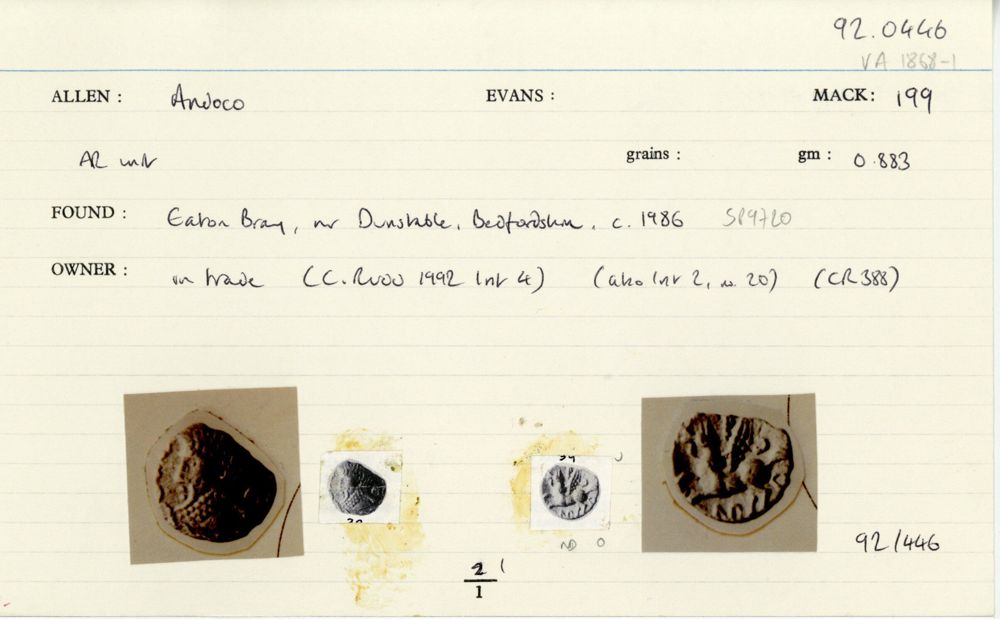 92.0446
VA 1868-1
ALLEN : Andoco EVANS : MACK: 199
AR unit grains : gm : 0.883
FOUND : Eaton Bray, nr Dunstable, Bedfordshire, c. 1986 SP9720
OWNER : in trade (C. Rudd 1992 list 4) (also list 2, no. 20) (CR388)
39
ND O
92/446
2
1